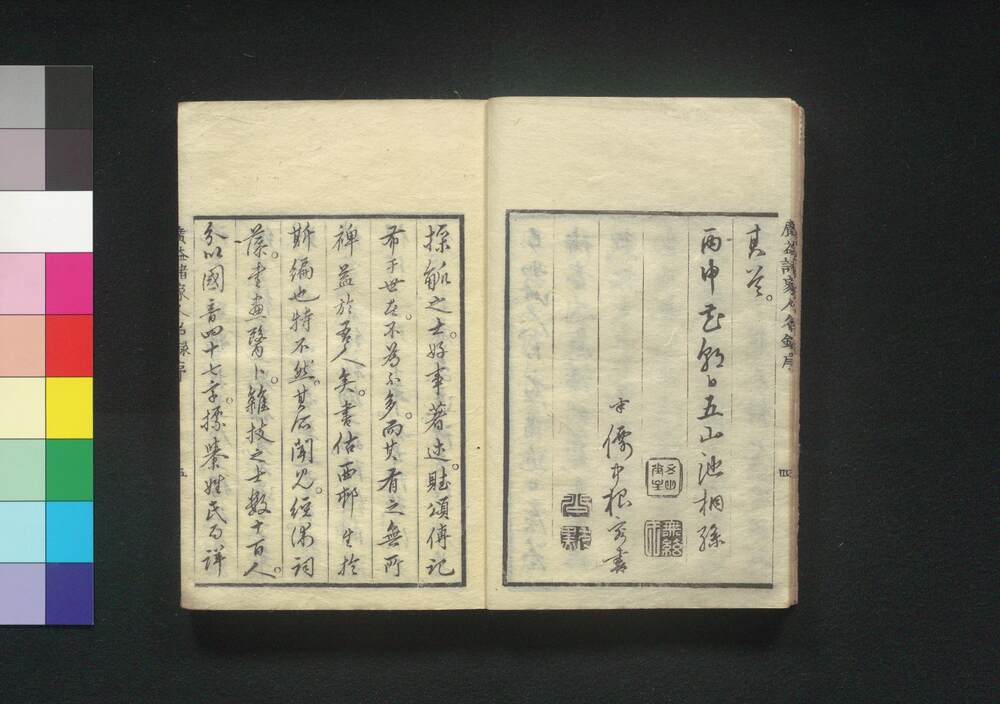 其首。
丙申花朝日五山池桐孫
半僊中根容書
四
廣益諸家人名錄序
操觚之士。好事著述。賦頌傳記
布于世者。不為不多。而其有之無所
裨益於吾人矣。書估西邨生於
斯編也特不然。其所聞見。經術詞
藻。書畫醫卜。雜技之士數十百人。
分以國音四十七字。標纂姓氏而詳
廣益諸家人名錄序
五